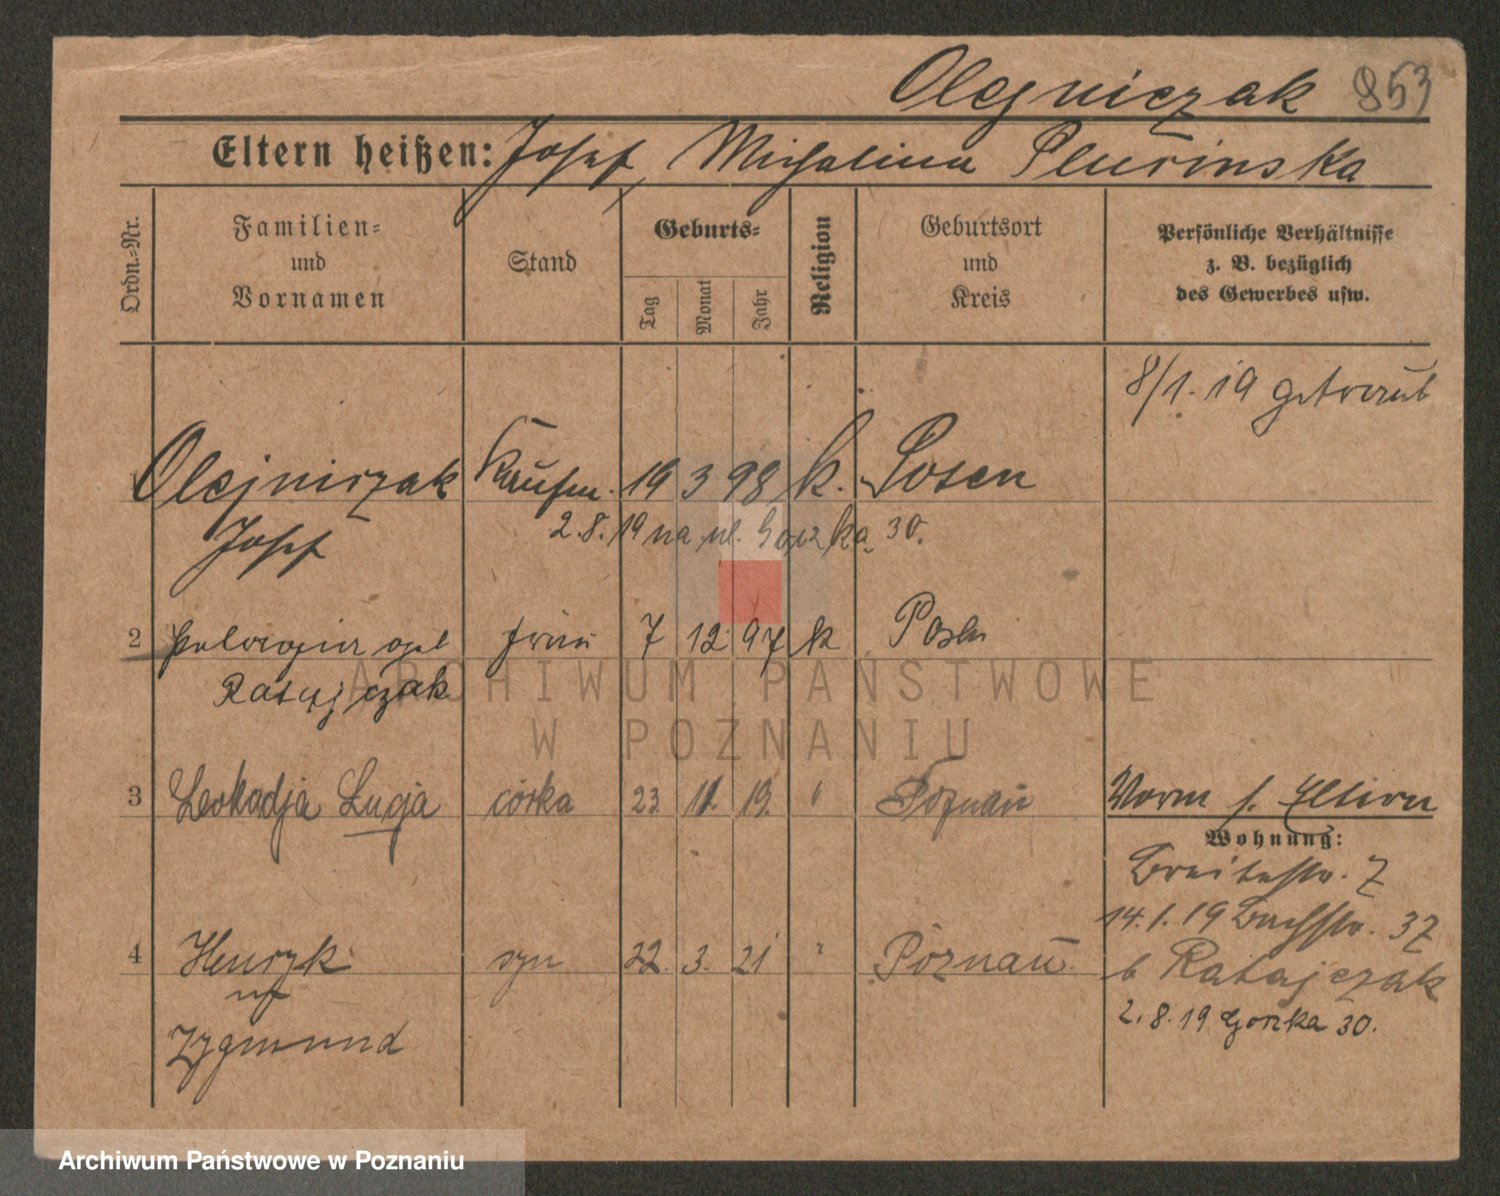 Olejniczak 853
Eltern heißen: Josef, Michalina Plucinska
Ordn.-Nr.
Familien-
und
Vornamen
Stand
Geburts-
Tag
Monat
Jahr
Religion
Geburtsort
und
Kreis
Persönliche Verhältnisse
z. B. bezüglich
des Gewerbes usw.
8/1. 19 getraut
1 Olejniczak Kaufm. 19 3 98 k. Posen
Josef
2.8.19 na ul. Gorzka 30.
2 Pelagia geb Frau 7 12 97 k Posen
Ratajczak
3 Leokadja Łucja córka 23. 11. 19. " Poznań
Vorm b. Eltern
Wohnung:
Breitestr. 7
14.1.19 Bachstr. 37
4 Henryk syn 22. 3. 21 " Poznań
b Ratajczak
2.8.19 Gorzka 30.
Zygmund
ARCHIWUM PAŃSTWOWE
W POZNANIU
Archiwum Państwowe w Poznaniu